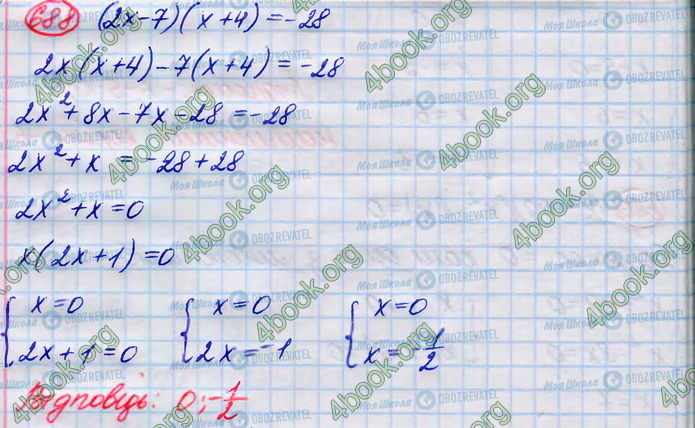 688 (2x-7)(x+4)=-28
2x(x+4)-7(x+4)=-28
2x²+8x-7x-28=-28
2x²+x=-28+28
2x²+x=0
x(2x+1)=0
{ x=0 { x=0 { x=0
{ 2x+1=0 { 2x=-1 { x=-1/2
Відповідь: 0; -1/2
4book.org
Моя Школа OBOZREVATEL